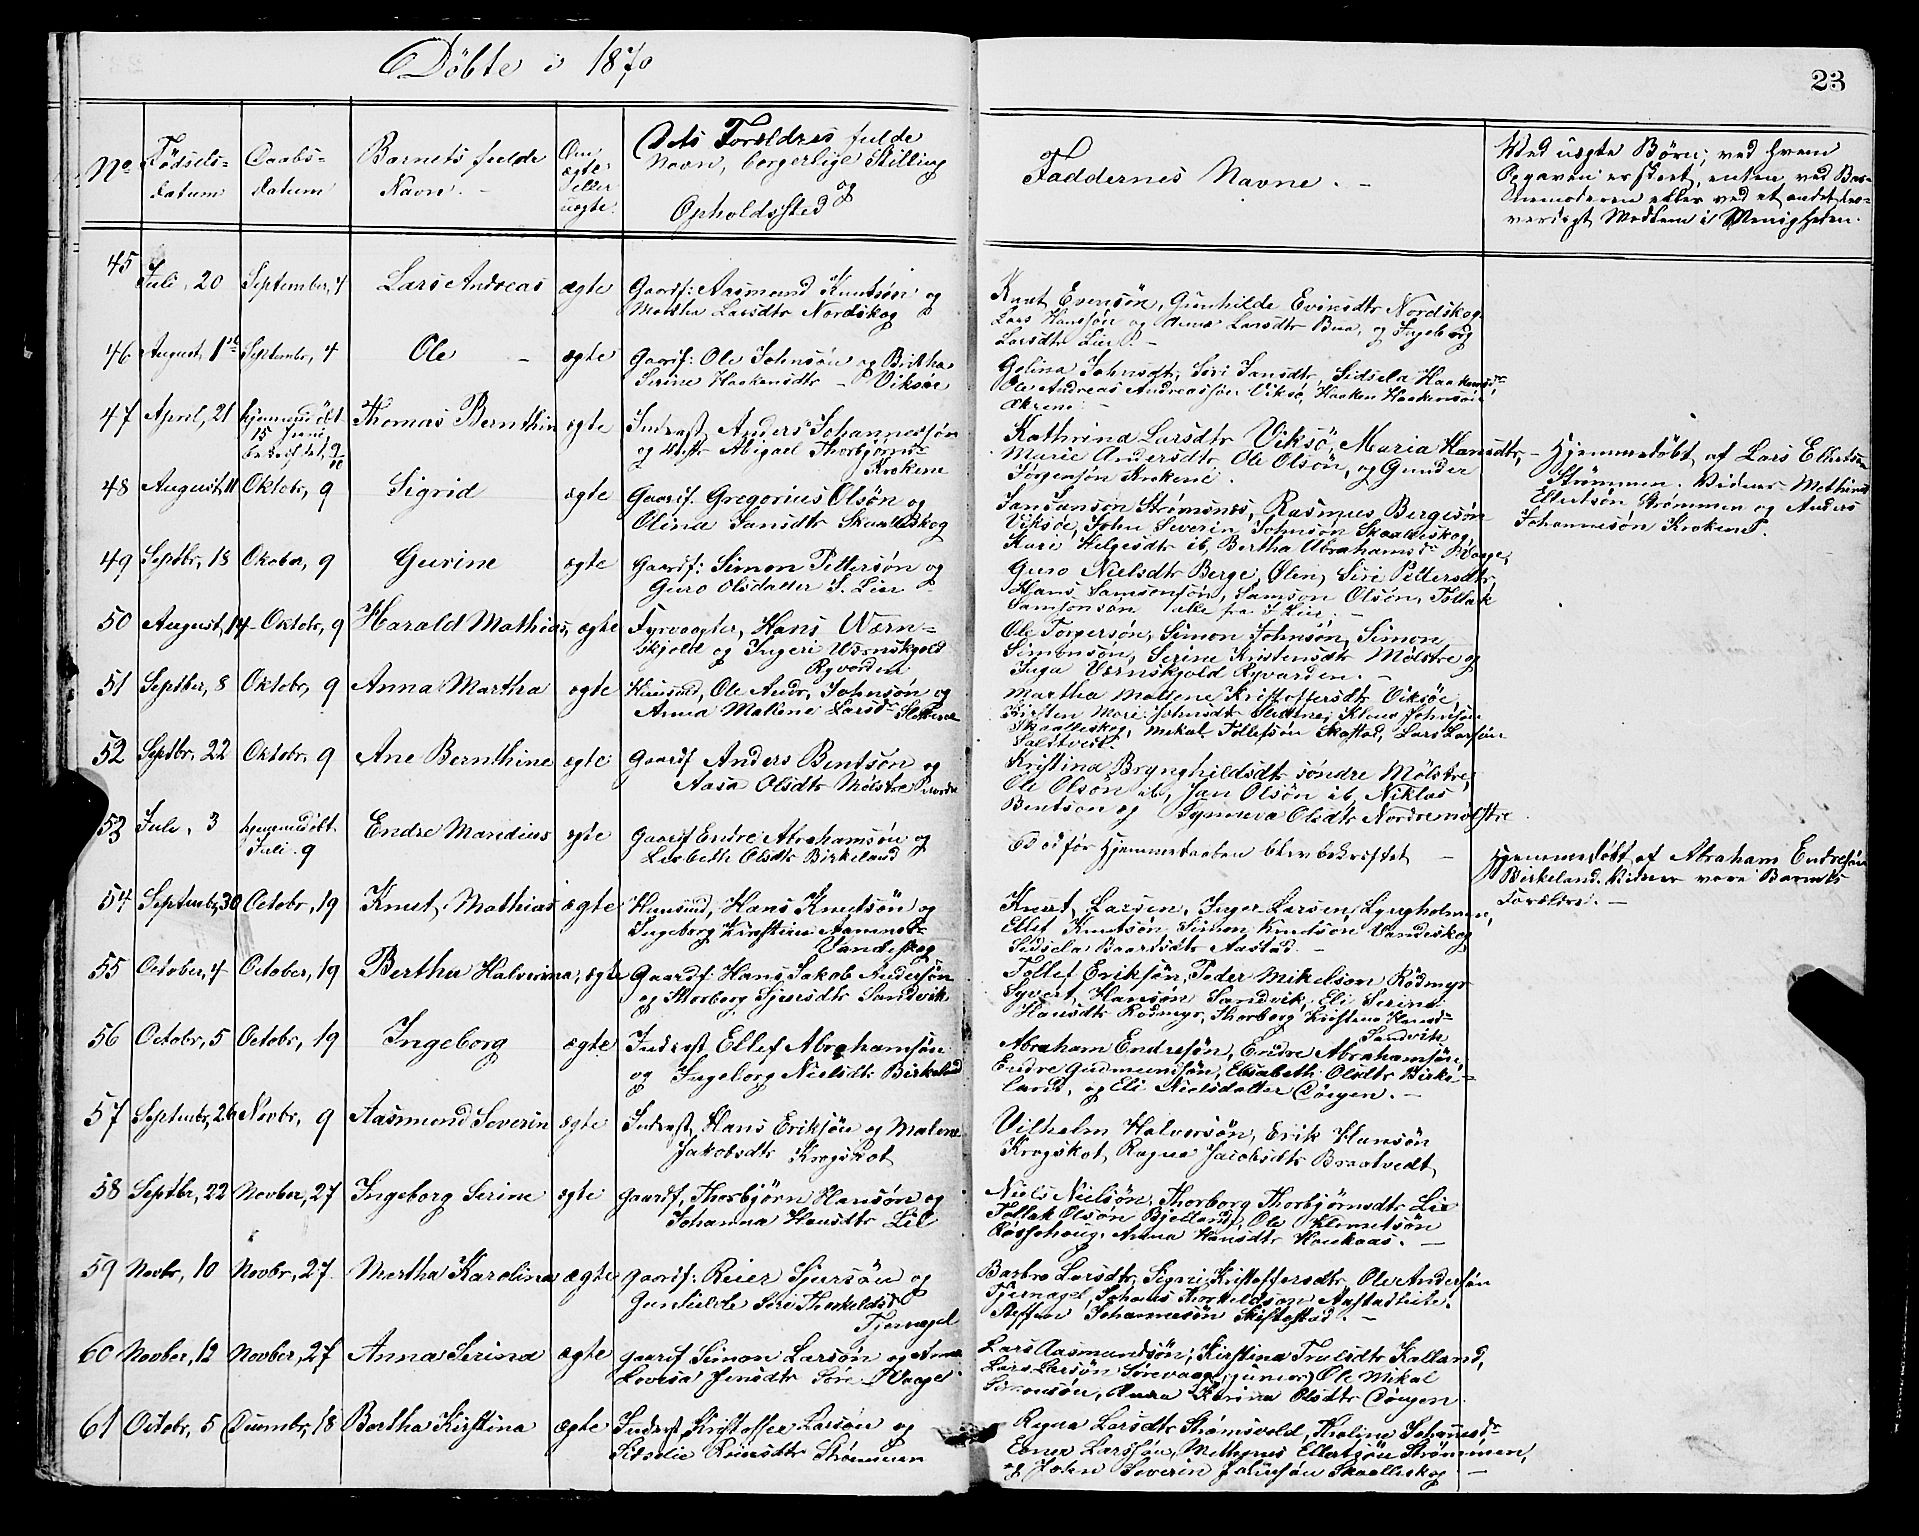 Döbte i 1870
23
No
Fødsels-
datum
Daabs-
datum
Barnets fulde
Navn. -
Om
ægte
eller
uægte.
Dets Foreldres fulde
Navn, borgerlige Stilling
og
Opholdssted
Faddernes Navne. -
Ved uægte Børn; ved hvem
Opgaven er skeet, enten ved Bar-
nemoderen eller ved et andet tro-
værdigt Medlem i Menigheden.
45
Juli, 20 September, 4 Lars Andreas ægte Gaardf: Aasmund Knutsøn og
Martha Larsdtr Nordskog
Knut Evensøn, Gunhilde Eriksdtr Nordskog,
Lars Hanssøn og Larsdtr Bua, og Ingeborg
Larsdtr Lier
46 August, 1ste Septembr, 4 Ole - ægte Gaardf: Ole Johnsøn og Brithe
Serine Haakensdtr - Viksøe
Golina Johnsdtr, Siri Jansdtr, Sidsela Haakensd
Ole Andreas Andreassøn Viksø, Haaken Haakensøn
Økrene
47 April, 21 hjemmedöbt
15 Juni
bekræftet 9/10
Thomas Bernthin ægte Inderst, Anders Johannessøn
og Hstr Abigael Thorbjørns-
Krokene
Kathrina Larsdtr Viksö, Maria Hansdtr,
Marie Andersdtr, Ole Olsön, og Gunder
Torgersøn Krokene.
- Hjemmedöbt af Lars Ellertsøn
Strømmen. Vidner Methines
Ellertsøn Strømmen og Anders
Johannesøn Krokene.
48 August, 11 Oktobr, 9 Sigrid ægte Gaardf. Gregorius Olsøn og
Olina Jansdtr Skaaleskog
Jan Jansøn Strømsnes, Rasmus Bergesøn
Viksøe, John Severin Johnsøn Skaaleskog,
Kari Helgesdtr ib, Bertha Abrahamsdtr Vaage,
49 Septbr, 18 Okober, 9 Gurine ægte Gaardf: Simon Pettersøn og
Guro Olsdatter S. Lier
Guro Nielsdtr Berge, Ølen, Siri Pettersdtr,
Hans Samsonsøn, Samson Olsøn, Tollak
Samsonsøn alle fra S Lier. -
50 August, 14 Oktobr, 9 Harald Mathias, ægte Fyrvogter, Hans Wern-
skjold og Ingeri Wernskjold
Ryvarden
Ole Torgersøn, Simon Johnsøn, Simon
Simonsøn, Serine Kristensdtr Mølstre og
Inga Vernskjold Ryvarden. -
51 Septber, 8 Oktobr, 9 Anna Martha ægte Huusmd, Ole Andr. Johnsøn og
Anna Malene Larsdtr Slettene
Martha Mallene Kristoffersdtr Viksøe,
Kirsten Mari Johnsdtr Slettene, Klaus Johnsøn
Skaalleskog, Mikal Tollefsøn Skogstad, Lars Larsøn
Saltvest.
52 Septbr, 22 Oktobr, 9 Ane Bernthine ægte Gaardf Anders Bentsøn og
Aasa Olsdtr Mølstre nordre
Kristina Brynghildsdtr søndre Mölstre,
Ole Olsøn ib, Jan Olsøn ib, Niklas
Bentson og Synneva Olsdtr Nordremølstre.
53 Juli, 3 hjemmedöbt.
Juli. 9
Endre Maridius ægte Gaardf Endre Abrahamsøn og
Lisbeth Olsdtr Birkeland
Död för Hjemmedaaben blev bekræftet -
Hjemmedöbt af Abraham Endresøn
Birkeland. Vidner vare Barnets
Forældre. -
54 Septembr, 30 Octobr, 19 Knut Mathias ægte Husmd, Hans Knutsøn og
Ingeborg Kirstine Aamundsd
Vandeskog
Knut Larsen, Inger Larsen Lyngholmen,
Ellef Knutsøn, Simon Knudsøn Vandeskog
Sidsela Baardsdtr Aastad. -
55 October, 4 October, 19 Bertha Halverina, ægte Gaardf. Hans Jakob Andersøn
og Thorborg Sjursdtr Sandvik
Tollef Eriksøn, Peder Mikelson Rødmyr
Syvert Hansøn Sandvik, Eli Serina
Hansdtr Rødmyr, Thorborg Kristina Hansd-
Sandvik
56 Octobr, 5 Octobr, 19 Ingeborg ægte Inderst Ellef Abrahamsøn
og Ingeborg Nielsdtr Birkeland
Abraham Endresøn, Endre Abrahamsøn,
Endre Gudmunsøn, Elisabeth Olsdtr Birke-
land, og Eli Nielsdatter Döngen. -
57 Septembr, 26 Novbr, 9 Aasmund Severin ægte Inderst, Hans Eriksøn og Malene
Jakobsdtr Kragskot
Vilhelm Halversøn, Erik Hansøn
Kragskot, Ragna Jacobsdtr Braatvedt
58 Septbr, 22 Novber, 27 Ingeborg Serine ægte gaardf, Thorbjørn Hansøn og
Johanna Hansdtr Lie
Niels Nielsøn, Thorborg Thorbjørnsdtr Lie
Tollak Olsøn Bjelland, Ole Klemetsøn
Røssehaug, Anna Hansdtr Haukaas. -
59 Novbr, 10 Novbr, 27. Martha Karolina ægte gaardf: Reier Sjursøn og
Gunhilde Siri Thorkildsd
Tjernagel
Barbro Larsdtr, Signi Kristoffersdtr, Ole Andersøn
Tjernagel, Johans Thorkildson Aastadlien,
Steffen Johannesøn Kistestad. -
60 Novber, 12 Novber, 27 Anna Serina ægte gaardf Simon Larsøn og Anna
Lovisa Jensdtr Søre Waage
Lars Aasmundsøn, Kirstina Trulsdtr Kalland,
Lars Larsøn Sørevaag, (junior) Ole Mikal
Simonsøn, Anna Karina Olsdtr Döngen.
61 Octobr, 5 Decembr, 18 Bertha Kirstina ægte Inderst Kristoffer Larsøn og
Sidselie Reiersdtr Strømmen
Ragna Larsdtr Strømsvold, Thaline Johannesd-
Larssøn, Methines Ellertsøn Strømmen,
og John Severin Johnsøn Skaalleskog. -